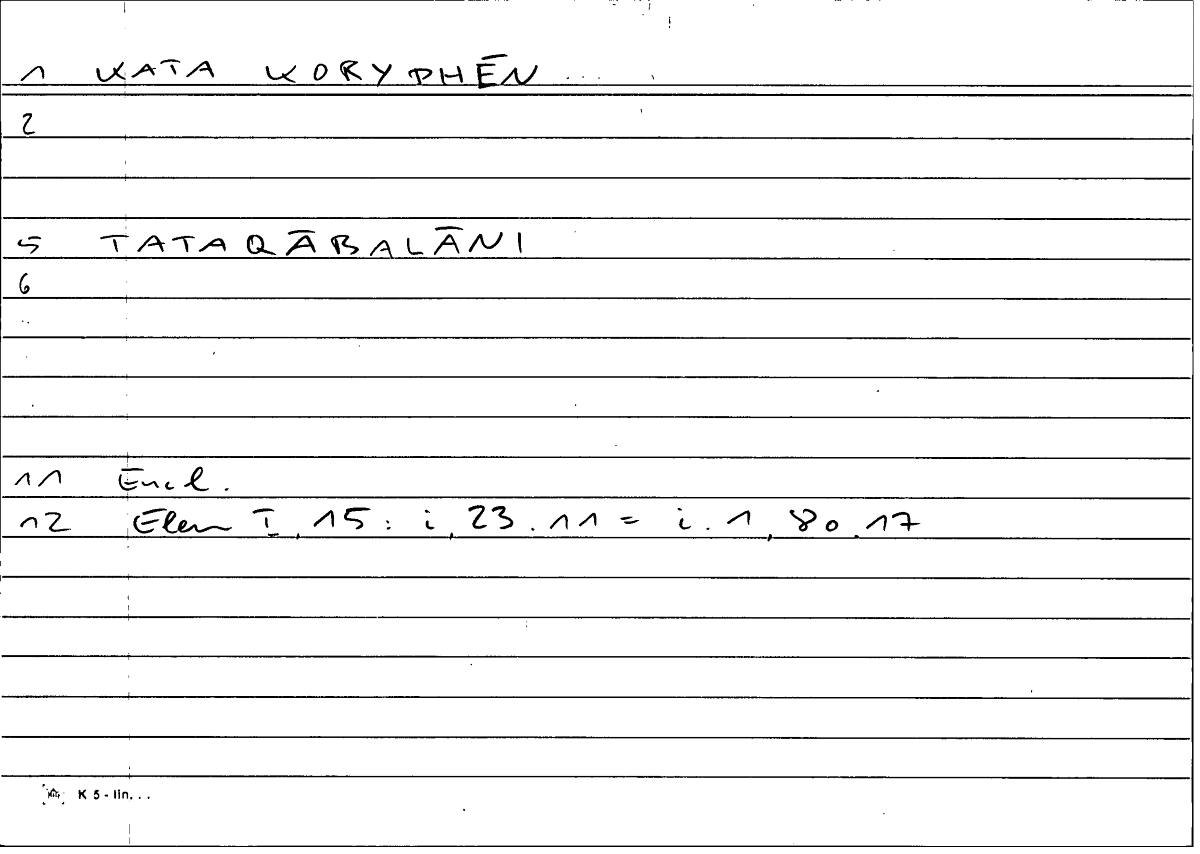 1 KATA KORYPHĒN ...
2
5 TATAQĀBALĀNI
6
11 Eucl.
12 Elem I, 15 : i, 23.11 = i.1, 80.17
K 5 - lin...